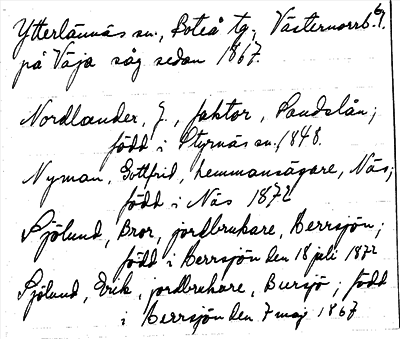 Ytterlännäs sn., Boteå tg, Västernorrl.
på Väja såg sedan 1867.
Nordlander, J., faktor, Sandslån;
född i Styrnäs sn. 1848.
Nyman, Gottfrid, hemmansägare, Näs;
född i Näs 1872
Sjölund, Bror, jordbrukare, Berrsjön;
född i Berrsjön den 18 juli 1872
Sjölund, Erik, jordbrukare, Bursjö; född
i Berrsjön den 7 maj 1867